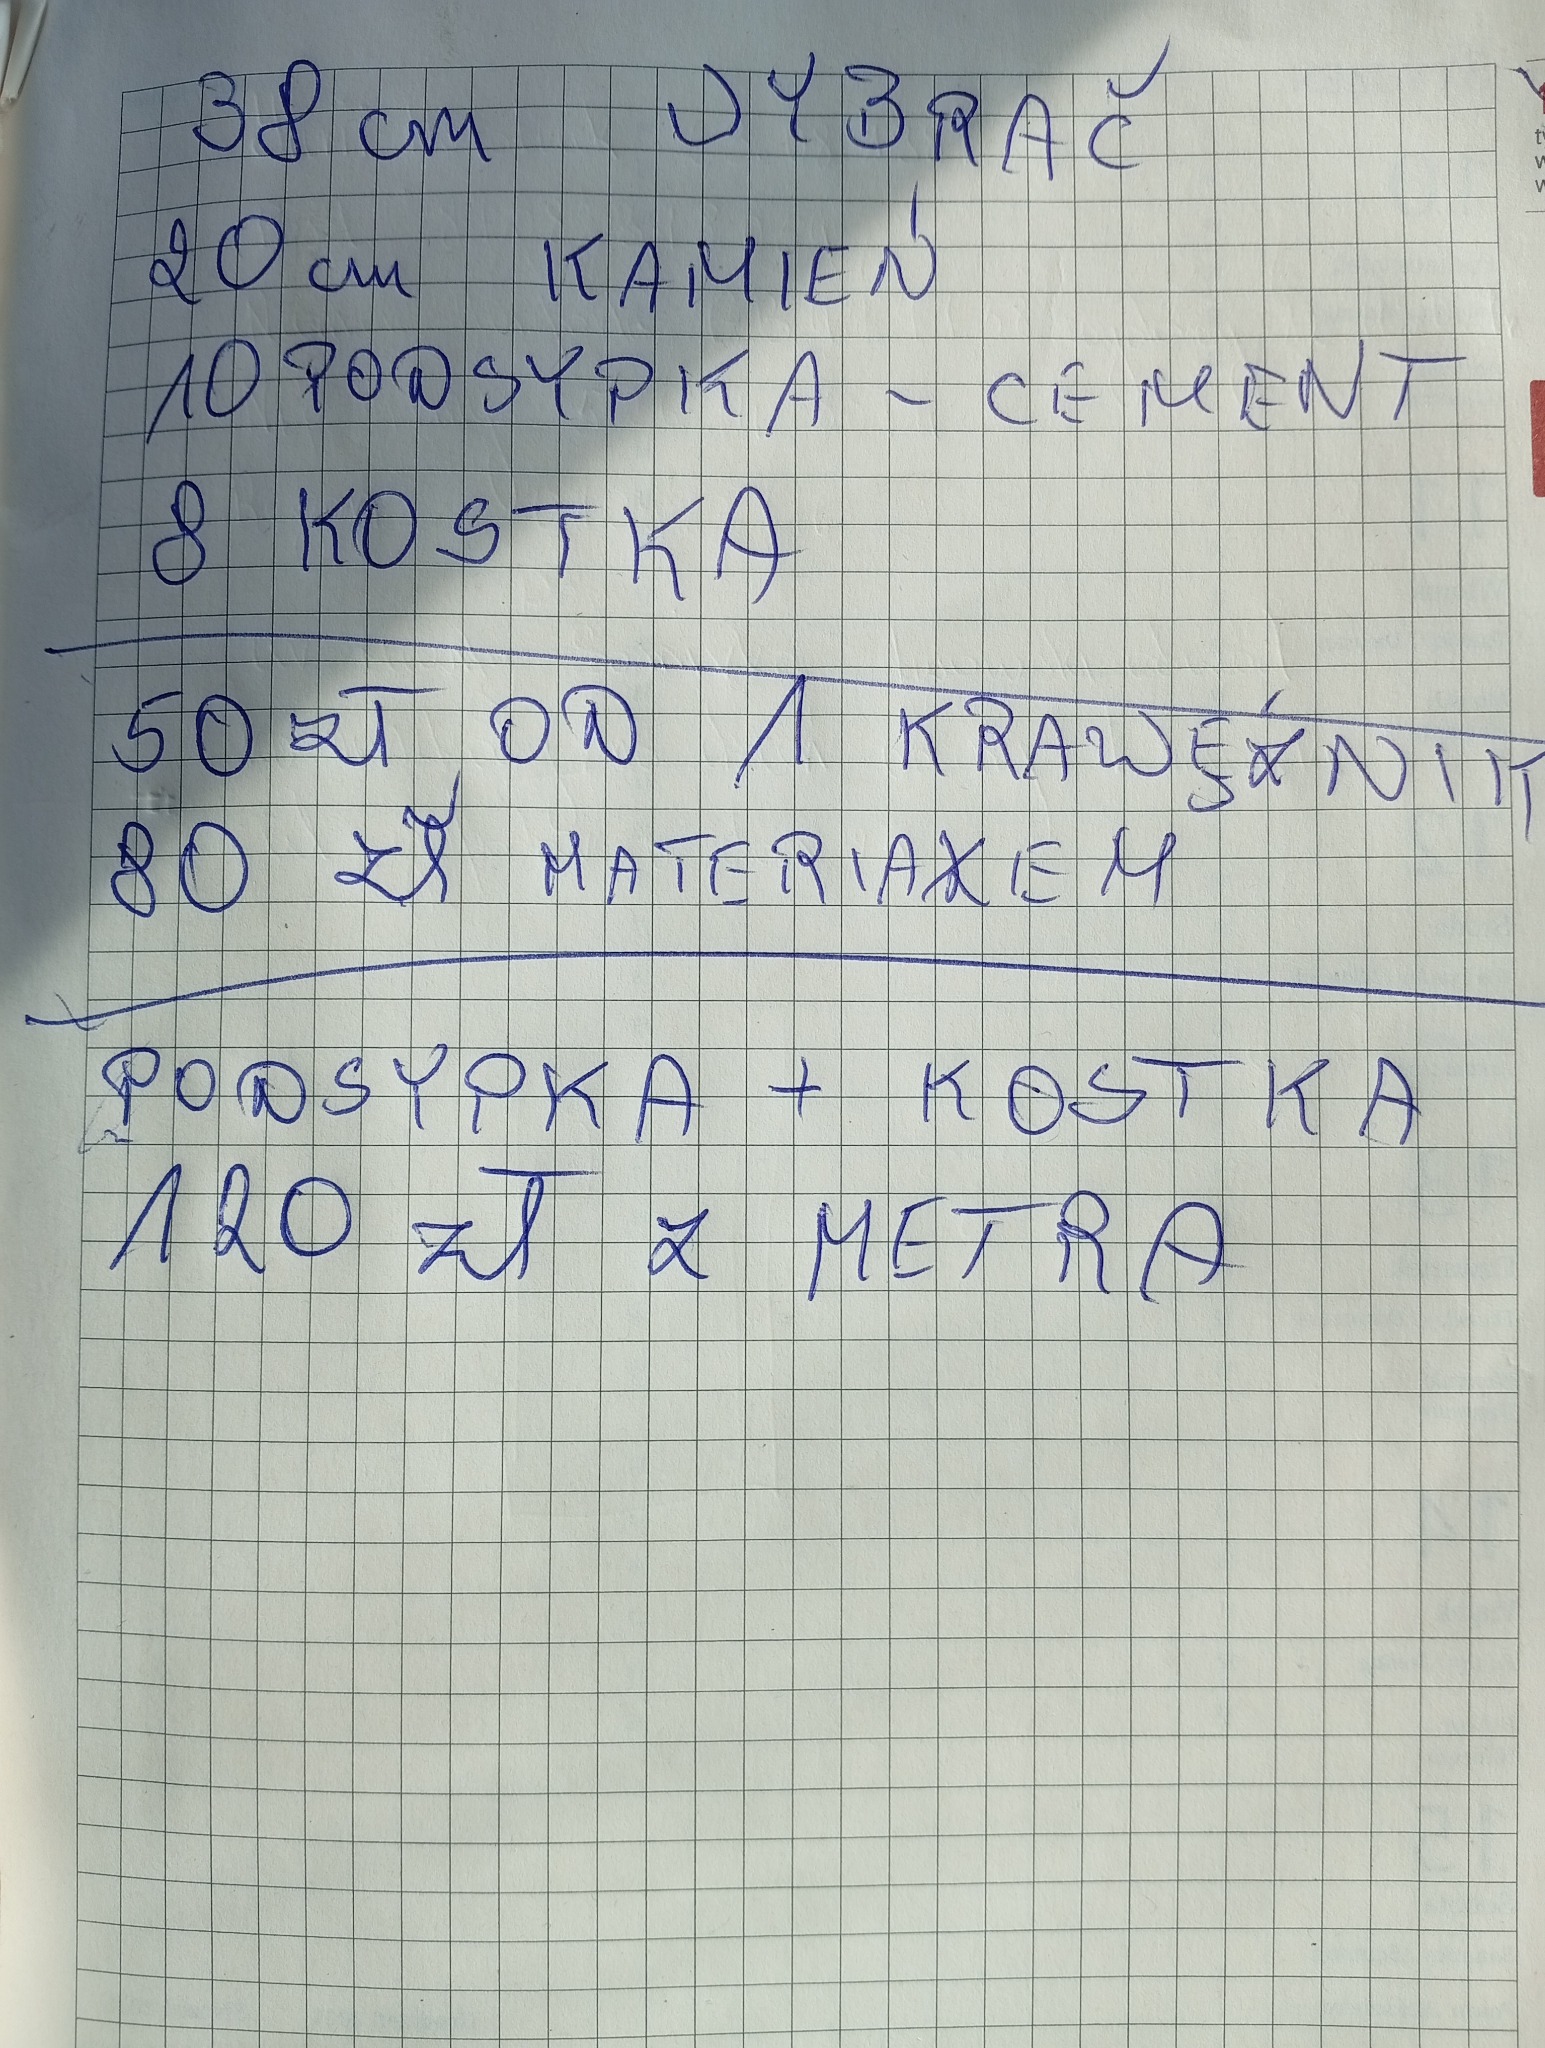 38 cm WYBRAĆ
20 cm KAMIEŃ
10 PODSYPKA - CEMENT
8 KOSTKA
50 zł OD 1 KRAWĘŹNIK
80 zł MATERIAŁEM
PODSYPKA + KOSTKA
120 zł z METRA